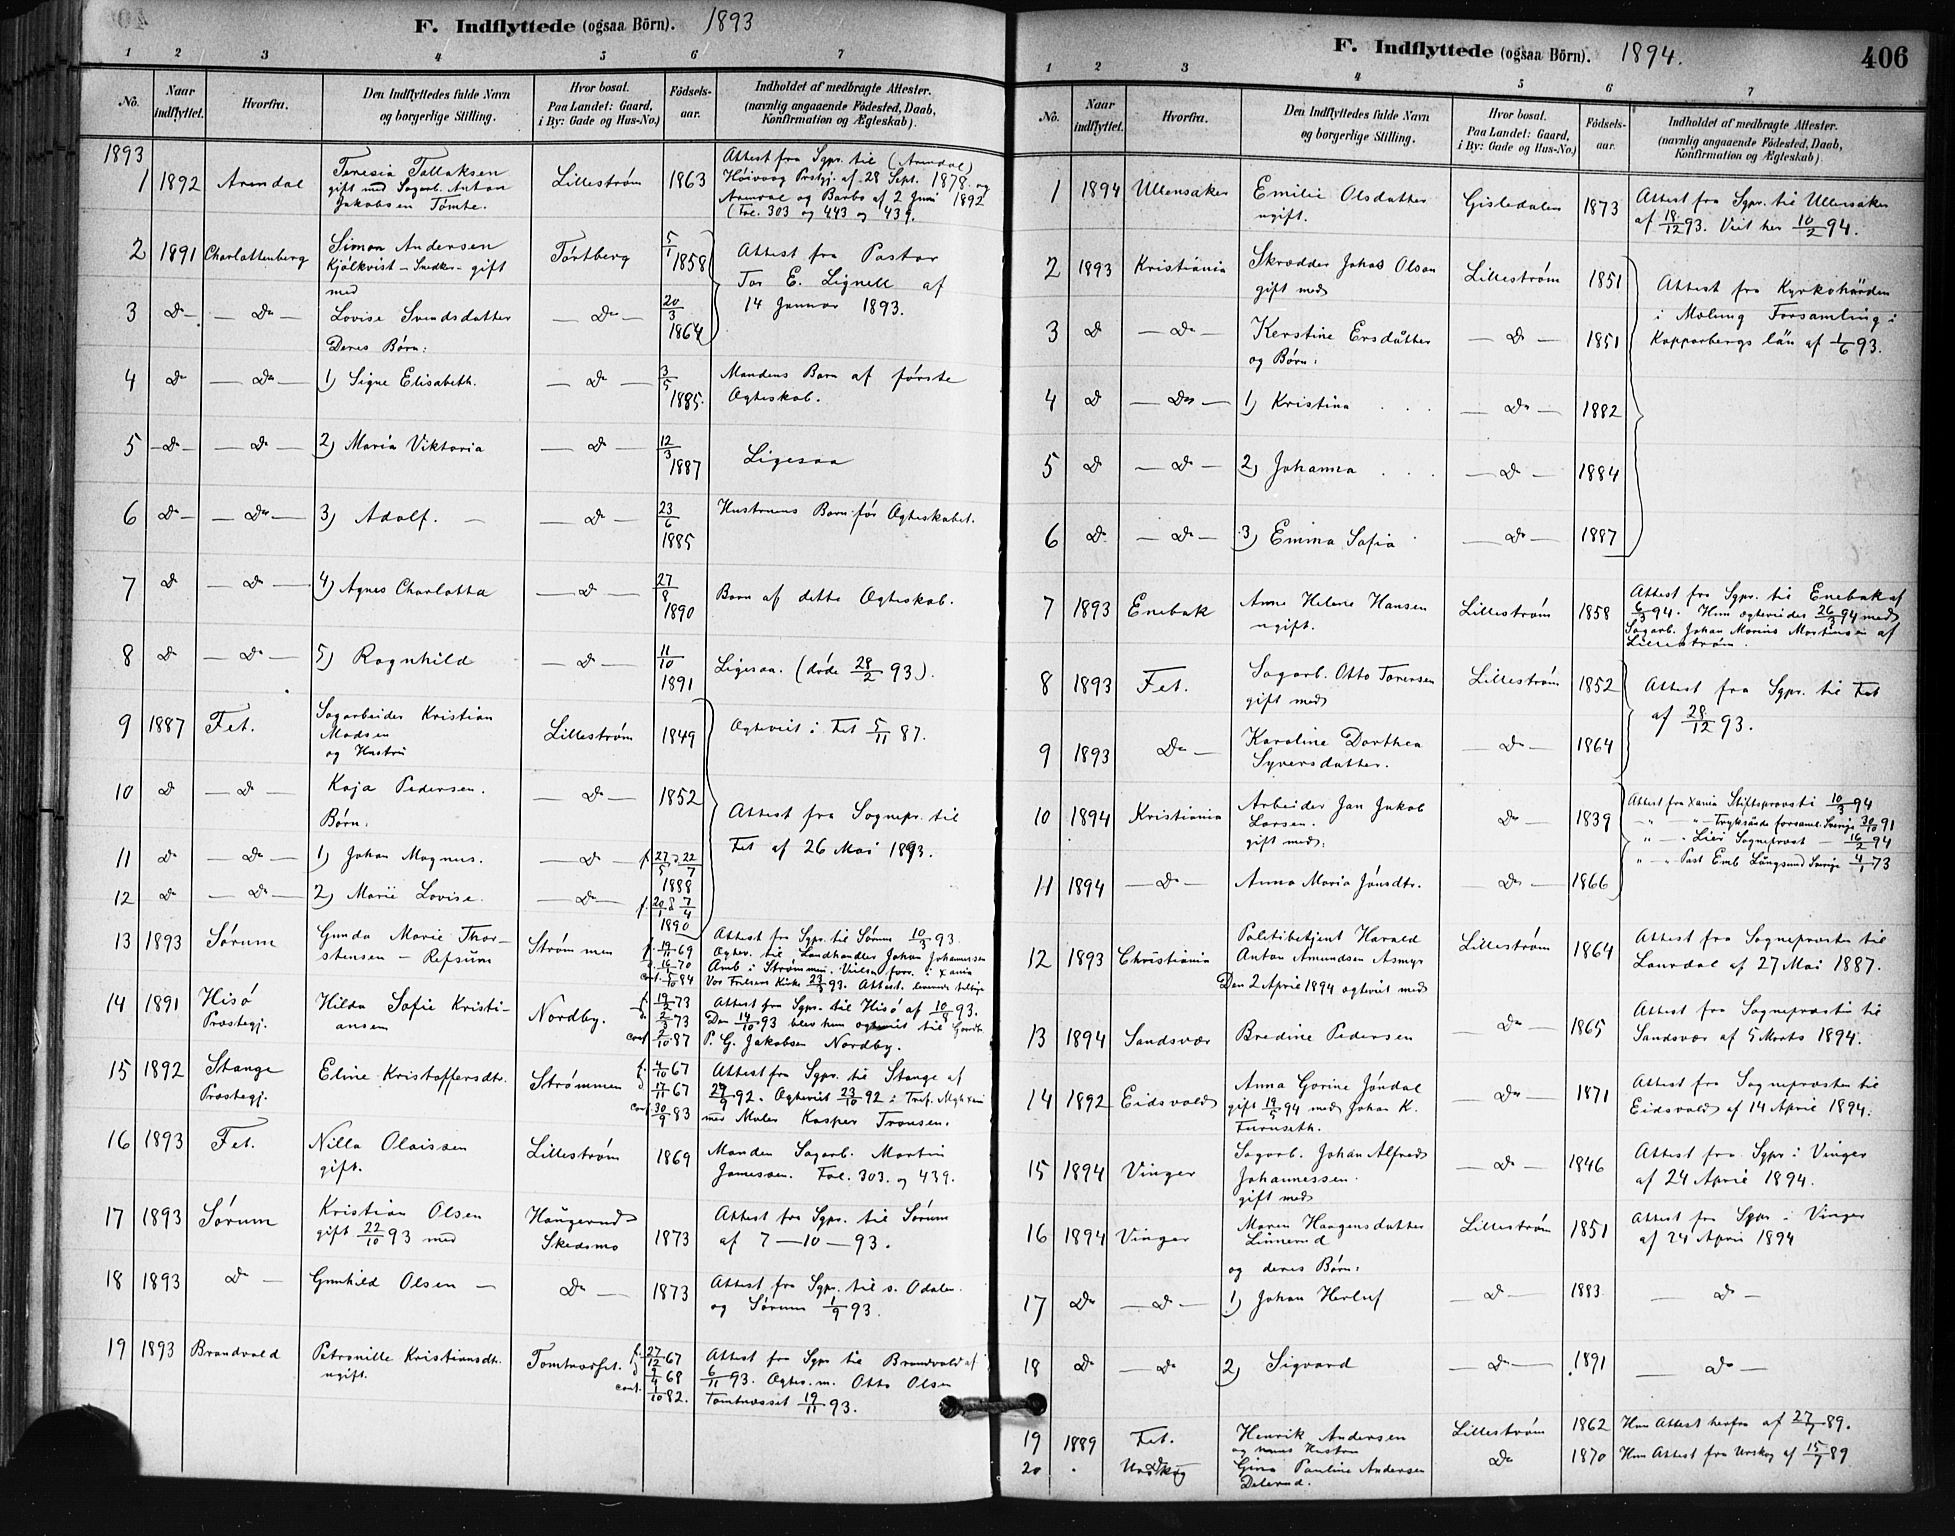 F. Indflyttede (ogsaa Börn). 1893
1 2 3 4 5 6 7
No.
Naar indflyttet.
Hvorfra.
Den Indflyttedes fulde Navn
og borgerlige Stilling.
Hvor bosat.
Paa Landet: Gaard,
i By: Gade og Hus-No.)
Fødsels-
aar.
Indholdet af medbragte Attester.
(navnlig angaaende Födested, Daab,
Konfirmation og Ægteskab).
1893
1 1892 Arendal Teresia Tallaksen Lillestrøm 1863 Attest fra Sgpr. til (Arendal)
gift med Sagarb. Anton Høivaag Prstgj. af 28 Sept. 1878. og
Jakobsen Tømte. Arendal og Barbo af 2 Juni 1892
(Fol. 303 og 443 og 439.
2 1891 Charlottenberg Simon Andersen Tørtberg 5/1 1858 Attest fra Pastor
Kjølkvist - Snedker - gift Tor E. Lignell af
med 14 Januar 1893.
3 do - Do - Lovise Svendsdatter - Do - 20/3 1864
Deres Børn:
4 do - Do - 1) Signe Elisabeth. - Do 3/5 1885. Mandens Barn af første
Ægteskab.
5 - Do - - Do - 2) Maria Viktoria - Do - 12/3 1887 Ligesaa
6 Do - - Do - 3) Adolf. - - Do - 23/6 1885 Hustruens Barn før Ægteskabet.
7 Do - Do - 4) Agnes Charlotta - Do - 27/8 1890 Barn af dette Ægteskab.
8 Do - Do - 5) Ragnhild - Do - 11/10 1891 Ligesaa. (døde 28/2 93).
9 1887 Fet. Sagarbeider Kristian Lillestrøm 1849 Ægteviet i Fet 5/11 87.
Madsen
og Hustru
10 Do - Do - Kaja Pedersen. - Do - 1852 Attest fra Sognepr. til
Børn: Fet af 26 Mai 1893.
11 Do - Do - 1) Johan Magnus. - Do - f. 27/5 d 22/7 1888
12 Do - Do - 2) Marie Lovise. - Do - f. 20/1 d 7/4 1890
13 1893 Sørum Gunda Marie Thor- Strømmen f. 19/11 69 Attest fra Sgpr. til Sørum 10/3 93.
stensen - Refsum d. 16/1 70 Ægtev. til Landhandler Johan Johannessen
conf. 5/10 84 Vor Frelsers Kirke 23/3 93.
14 1891 Hisö Hilda Sofie Kristi- Nordby. f. 19/2 73 Attest fra Sgpr. til Hisö af 10/8 93.
Præstegj. ansen d. 2/3 73 Den 14/10 93 blev hun ægteviet til Gaardbr.
conf. 2/10 87 P. G. Jakobsen Nordby.
15 1892 Stange Eline Kristoffersdtr. Strømmen f. 4/10 67 Attest fra Sgpr. til Stange af
Præstegj. d 17/11 67 29/9 92. Ægteviet 23/10 92 i Tref. Mgh Xania
conf. 30/9 83 med Maler Kasper Tronsen.
16 1893 Fet. Nilla Olaissen Lillestrøm 1869 Manden Sagarb. Martin
gift. Jonassen. Fol. 303. og 439.
17 1893 Sørum Kristian Olsen Haugerud 1873 Attest fra Sgpr. til Sørum
gift 22/10 93 med Skedsmo af 7 - 10 - 93.
18 1893 Do - Gunhild Olsen - Do - 1873 Attest fra Sgpr. til s. Odalen
og Sørum 1/9 93.
19 1893 Brandvold Petronille Kristiansdtr. Tomtnæsset. f. 27/12 67 Attest fra Sgpr til Brandvold af
ugift. 4 68 6/11 93. Ægtev. m. Otto Olsen
conf. 1/10 82. Tomtnæsset 19/11 93.
F. Indflyttede (ogsaa Börn). 1894. 406
1 2 3 4 5 6 7
No.
Naar indflyttet.
Hvorfra.
Den Indflyttedes fulde Navn
og borgerlige Stilling.
Hvor bosat.
Paa Landet: Gaard,
i By: Gade og Hus-No.)
Fødsels-
aar.
Indholdet af medbragte Attester.
(navnlig angaaende Födested, Daab,
Konfirmation og Ægteskab).
1 1894 Ullensaker Emilie Olsdatter Gisledalen 1873 Attest fra Sgpr. til Ullensaker
ugift. af 18/12 93. Viet her 10/2 94.
2 1893 Kristiania Skrædder Johas Olson Lillestrøm 1851 Attest fra Kyrkohärden
gift med i Malung Forsamling i
3 Do - Do - Kerstine Ersdåtter - Do - 1851 Kopparbergs län af 1/6 93.
og Børn:
4 Do - Do - 1) Kristina . . - Do - 1882
5 Do - Do - 2) Johanna . . - Do - 1884
6 Do - Do - 3) Emma Sofia - Do - 1887
7 1893 Enebak Anne Helene Hansen Lillestrøm 1858 Attest fra Sgpr. til Enebak af
ugift. 6/3 94. Hun ægteviedes 26/3 94 med
Sagarb. Johan Marius Martinsen af
Lillestrøm.
8 1893 Fet. Sagarb. Otto Torersen Lillestrøm 1852 Attest fra Sgpr. til Fet
gift med af 28/12 93.
9 1893 Do - Karoline Dorthea - Do - 1864
Syversdatter.
10 1894 Kristiania Arbeider Jan Jakob Do - 1839 Attest fra Xania Stiftsprovsti 10/3 94
Larsen. " - " - forsaml. Sverige 30/10 91
gift med: " - " - Lier Sogneprest - 16/2 94
11 1894 - Do - Anna Maria Jönsdtr. - Do - 1866 " - " - Past. Emb Långsund Sverige 4/1 73
12 1893 Christiania Politibetjent Harald Lillestrøm 1864 Attest fra Sognepræsten til
Anton Amundsen Asmyr Laurdal af 27 Mai 1887.
Den 2 April 1894 ægteviet med
13 1894 Sandsvær Bredine Pedersen - Do 1865 Attest fra Sognepræsten til
Sandsvær af 5 Marts 1894.
14 1892 Eidsvold Anna Gorine Jøndal - Do - 1871 Attest fra Sognepræsten til
gift 19/5 94 med Johan K. Eidsvold af 14 April 1894.
Furuseth.
15 1894 Vinger Sagarb. Johan Alfred - Do - 1846 Attest fra Sgpr i Vinger
Johannessen. af 24 April 1894.
gift med
16 1894 Vinger Maren Haagensdatter Lillestrøm 1851 Attest fra Sgpr i Vinger
Linnerud af 24 April 1894
og deres Børn:
17 Do - Do - 1) Johan Herluf - Do - 1883 - Do -
18 Do - Do 2) Sigvard - Do - 1891 Do -
19 1889 Fet. Henrik Andersen Lillestrøm 1862 Hun Attest herfra af 27/7 89.
og hans Hustru
20 . Urskog Gina Pauline Andersen Do 1870 Hun Attest fra Urskog af 15/7 89
Delerud.